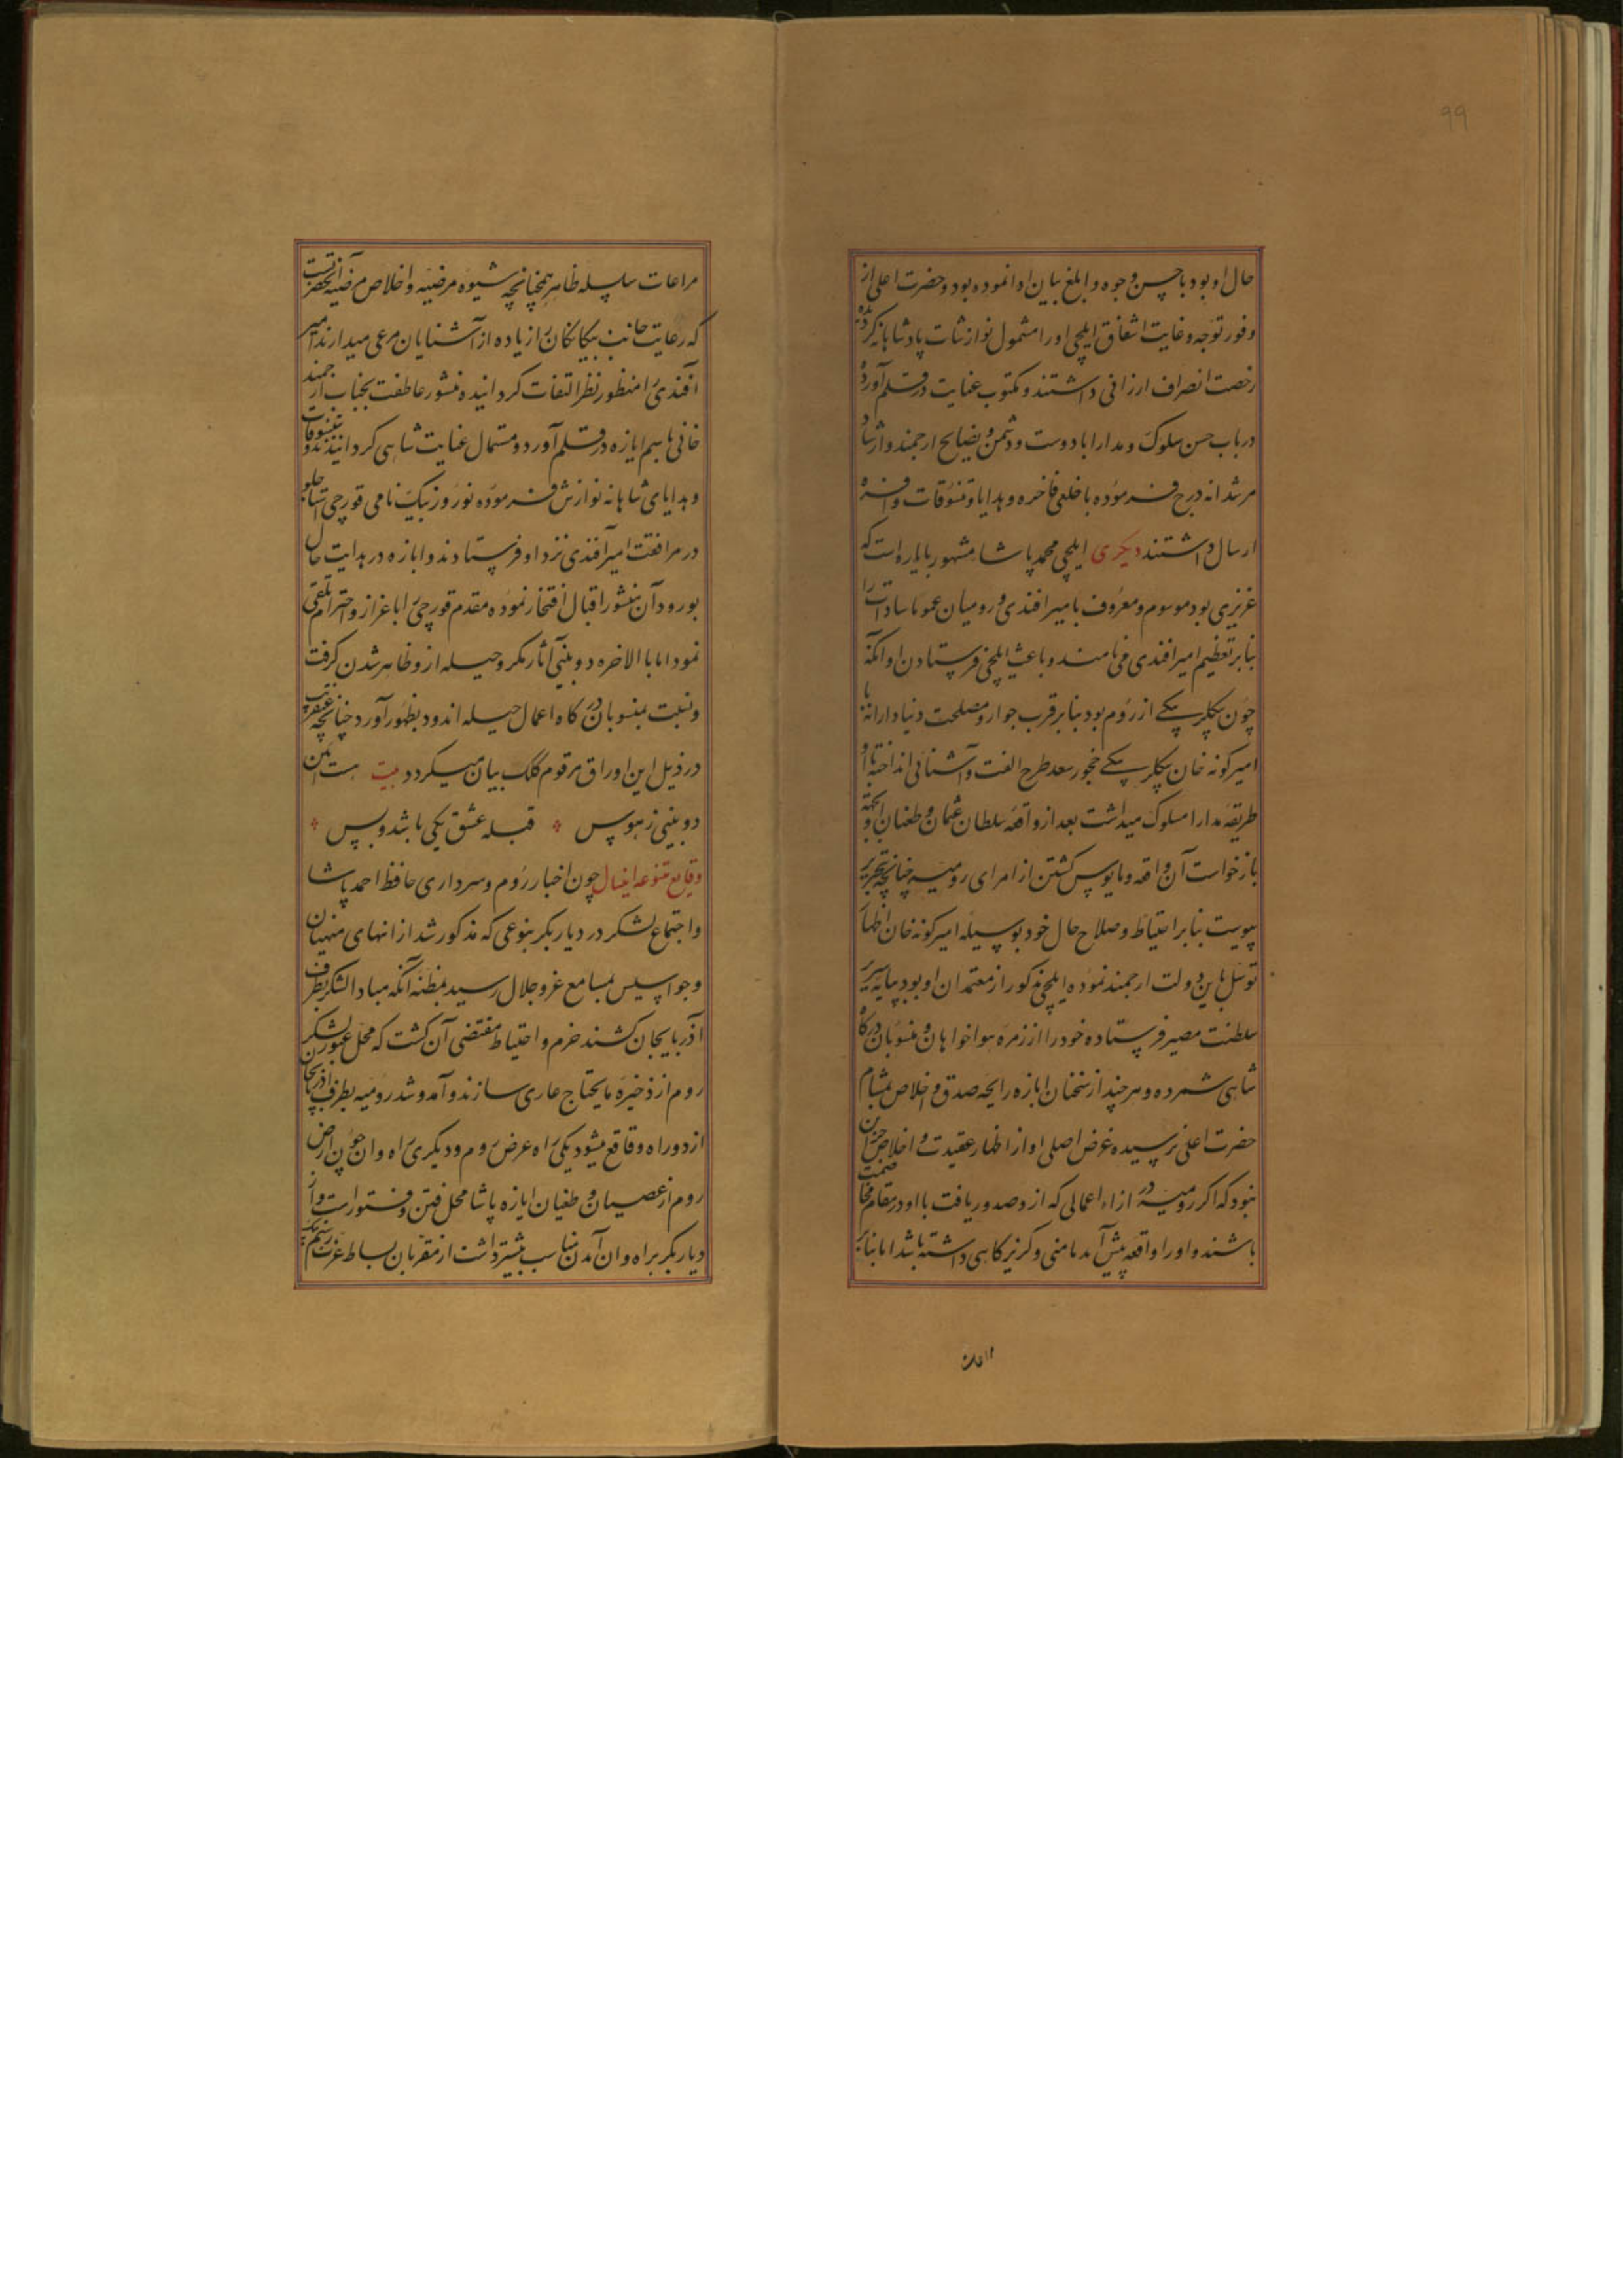 ۹۹
حال او بود باحسن وجوه و ابلغ بیان ادا نموده بود و حضرت اعلی از
وفور توجه و غایت اشفاق ایلچی او را مشمول نوازشات پادشاهانه کرده
رخصت انصراف ارزانی داشتند و مکتوب عنایت در قلم آورده
در باب حسن سلوک و مدارا با دوست و دشمن و نصایح ارجمند و ارشاد
مرشدانه درج فرموده با خلعی فاخره و هدایا و تنسوقات وافره
ارسال داشتند دیکری ایلچی محمد پاشا مشهور باباره است که
عزیزی بود موسوم و معروف بامیر افندی و رومیان عموما سادات را
بنابر تعظیم امیر افندی می نامند و باعث ایلچی فرستادن او آنکه
چون بیکلربیکی ارزروم بود بنابر قرب جوار و مصلحت دنیادارانه با
امیرکونه خان بیکلربیکی چخور سعد طرح الفت و آشنائی انداخته با او
طریقه مدارا مسلوک میداشت بعد از واقعه سلطان عثمان و طغیان او بجهة
بازخواست آن واقعه و مایوس کشتن از امرای رومیه چنانچه بتحریر
پیوست بنابر احتیاط و صلاح حال خود بوسیله امیرکونه خان اظهار
توسل باین دولت ارجمند نموده ایلچی مذکور از معتمدان او بود بپایه سریر
سلطنت مصیر فرستاده خود را از زمره هواخواهان و منسوبان درکاه
شاهی شمرده و هر چند از سخنان اباره رایحه صدق و اخلاص بمشام
حضرت اعلی نرسیده غرض اصلی او از اظهار عقیدت و اخلاص جز آن
نبود که اکر رومیه در ازاء اعمالی که از و صدور یافت با او در مقام مخاصمت
باشند و او را واقعه پیش آمد مامنی و کریزکاهی داشته باشد اما بنابر
مراعات
مراعات سلسله ظاهر همچنانچه شیوه مرضیه و اخلاص مرضیه آنحضرتست
که رعایت جانب بیکانکان را زیاده از آشنایان مرعی میدارند امیر
افندی را منظور نظر التفات کردانیده منشور عاطفت بجناب ارجمند
خانی باسم اباره در قلم آورده مستمال عنایت شاهی کردانیدند و تنسوقات
و هدایای شاهانه نوازش فرموده نوروز بیک نامی قورچی
در مرافقت امیر افندی نزد او فرستادند و اباره در بدایت حال
بورود آن منشور اقبال افتخار نموده مقدم قورچی را باعزاز و احترام تلقی
نمود اما بالاخره دوبینی آثار مکر و حیله از و ظاهر شدن کرفت
و نسبت بمنسوبان درکاه اعمال حیله اندود بظهور آورد چنانچه عنقریب
در ذیل این اوراق مرقوم کلک بیان میکردد بیت هست این
دوبینی ز هوس قبله عشق یکی باشد و بس
وقایع متنوعه اینسال چون اخبار روم و سرداری حافظ احمد پاشا
و اجتماع لشکر در دیاربکر بنوعی که مذکور شد از انهای منهیان
و جواسیس بمسامع عز و جلال رسید بمظنه آنکه مبادا لشکر بطرف
آذربایجان کشند حزم و احتیاط مقتضی آن کشت که محل عبور لشکر
روم از ذخیره مایحتاج عاری سازند و آمد و شد رومیه بطرف اذربایجان
از دو راه واقع میشود یکی راه ارض روم و دیکری راه وان چون ارض
روم از عصیان و طغیان اباره پاشا محل فتن و فتور است و از
دیاربکر براه وان آمدن تناسب بیشتر داشت از مقربان بساط عزت رستم بیک